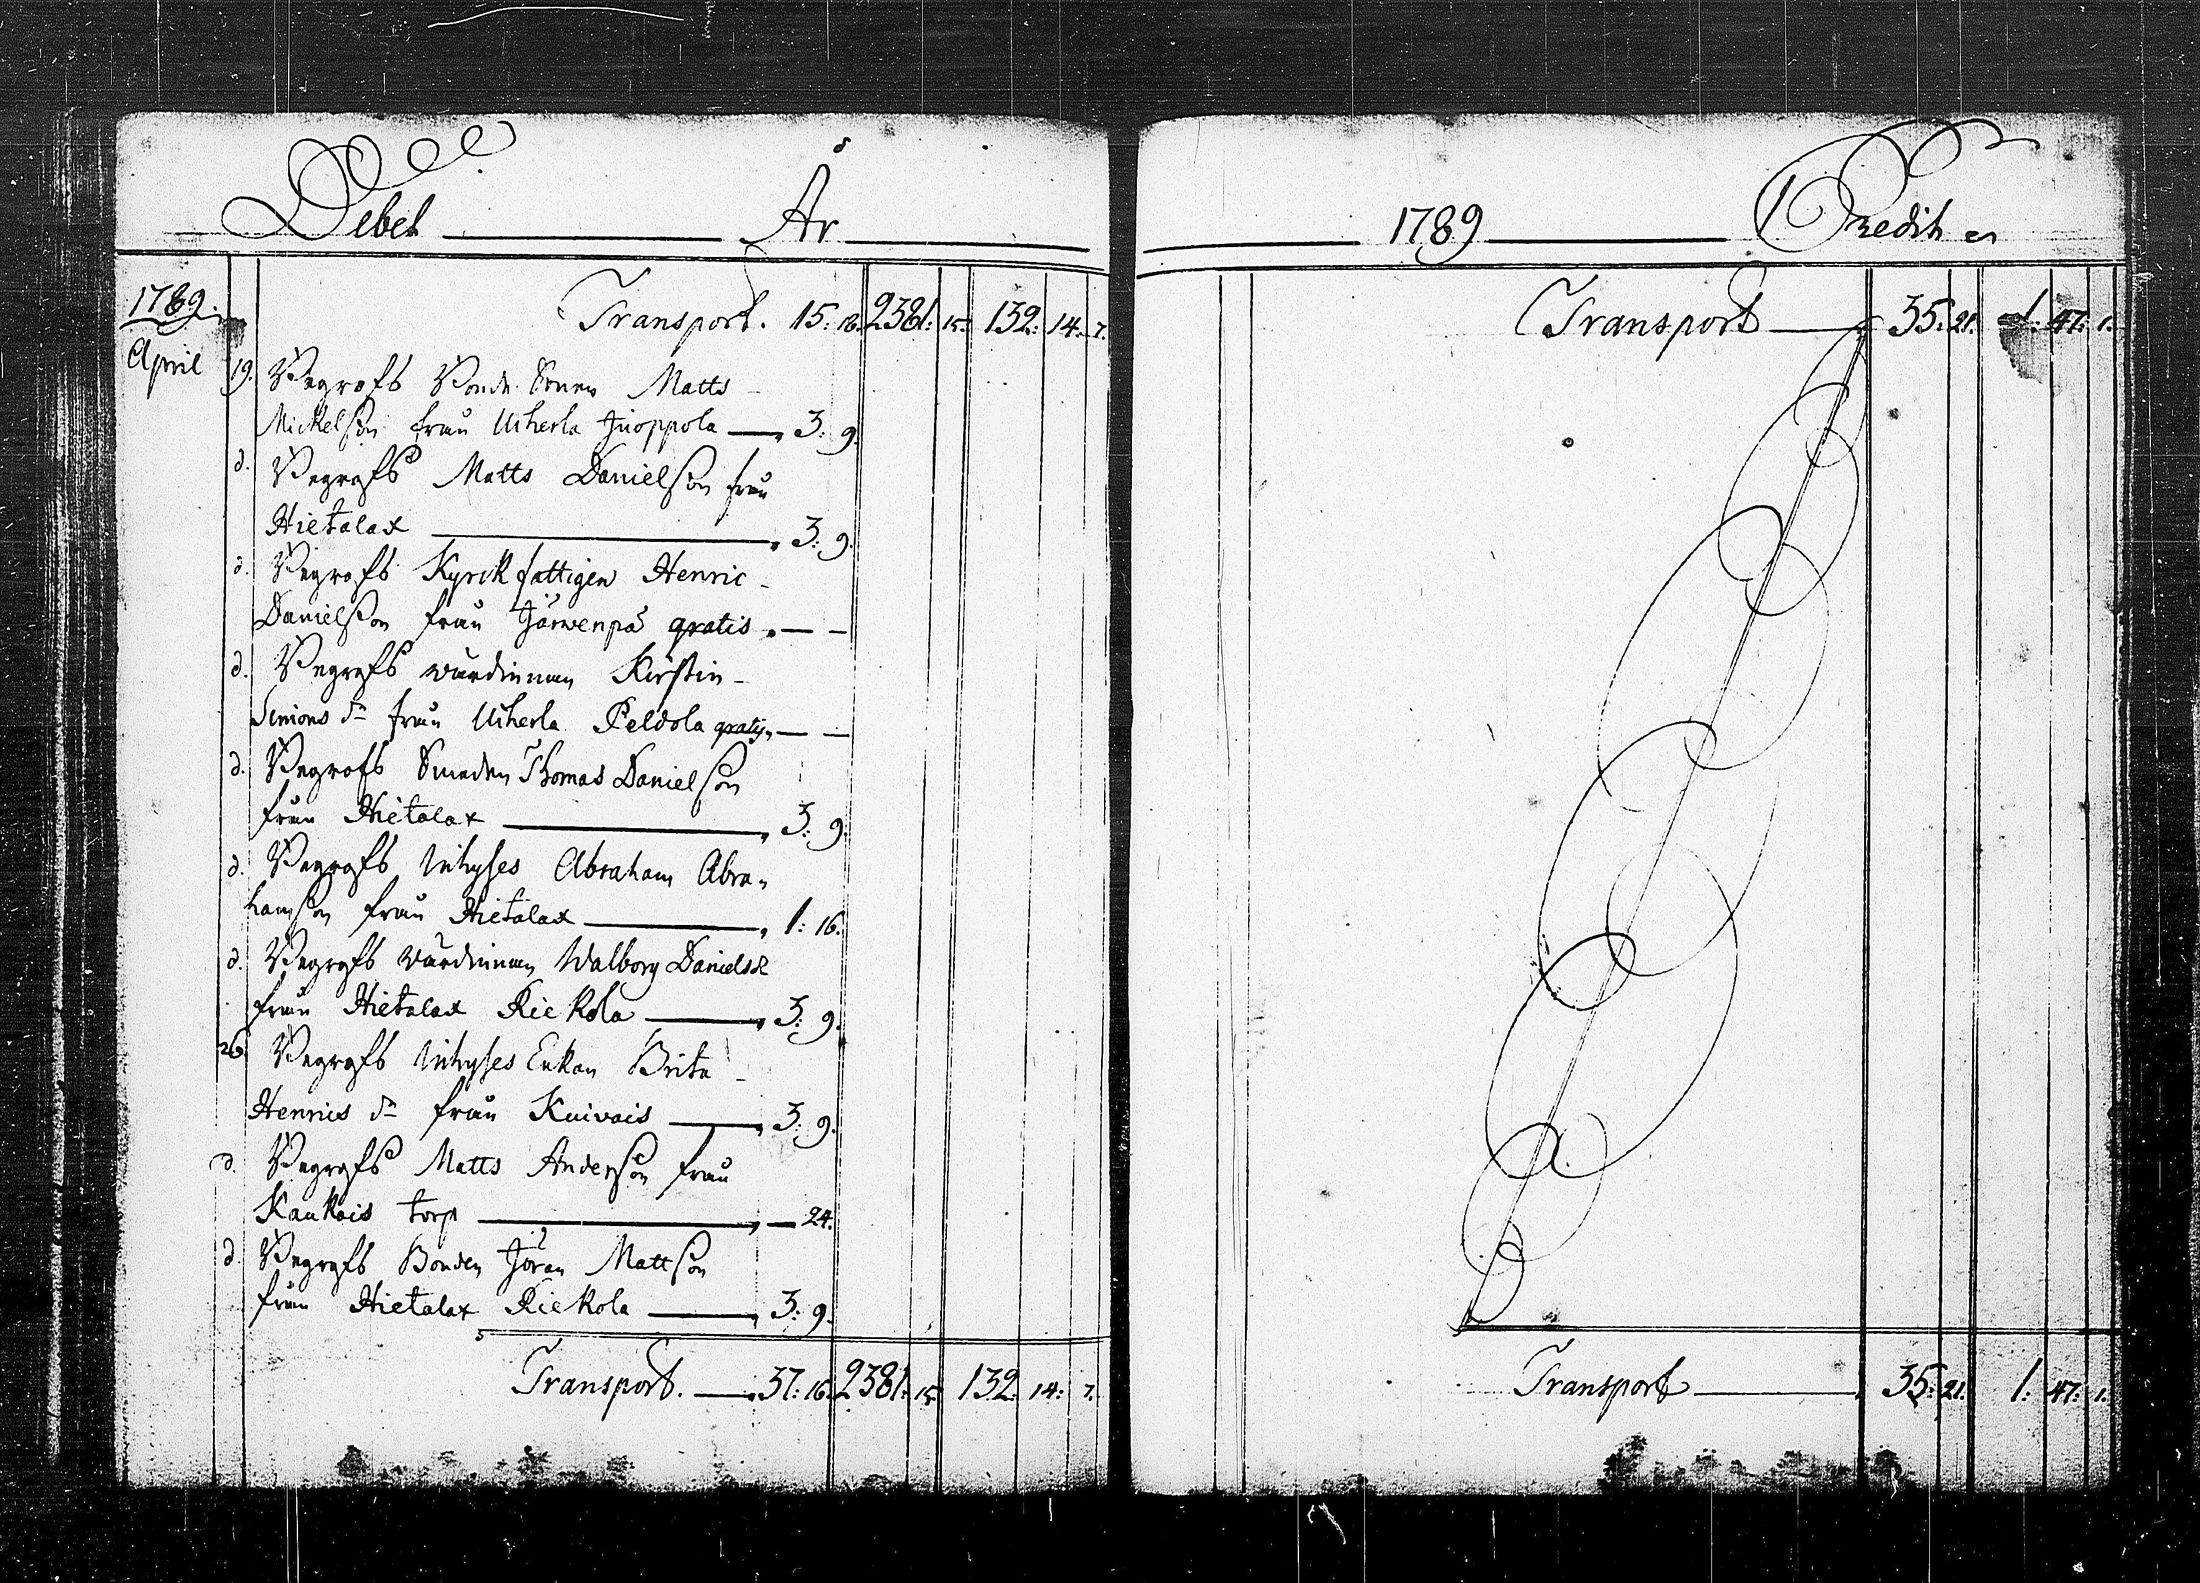 Debet År
1789. Transport. 15: 18. 2381: 15. 132: 14: 7.
April 19. Begrofs Bonde Sonen Matts
Mickelson från Uiherla Juoppola 3: 9.
d. Begrofs Matts Danielson från
Hietalax 3: 9.
d. Begrofs Kyrck fattigen Henric
Danielson från Järvenpä gratis — —
d. Begrofs wärdinnan Kirstin
Simons dr från Uiherla Peldola gratis — —
d. Begrofs Smeden Thomas Danielson
från Hietalax 3: 9.
d. Begrofs Inhyses Abraham Abra-
hamson från Hietalax 1: 16.
d. Begrofs Wärdinnan Walborg Daniels dr
från Hietalax Rickola 3: 9.
26. Begrofs Inhyses Enkan Brita
Henrics dr från Kuivais 3: 9.
d. Begrofs Matts Anderson från
Kaukois torp — 24.
d. Begrofs Bonden Jöran Mattson
från Hietalax Rickola 3: 9.
Transport. 37: 16. 2381: 15. 132: 14: 7.
1789 Credit
Transport 35: 21. 1: 47: 1.
Transport 35: 21. 1: 47: 1.